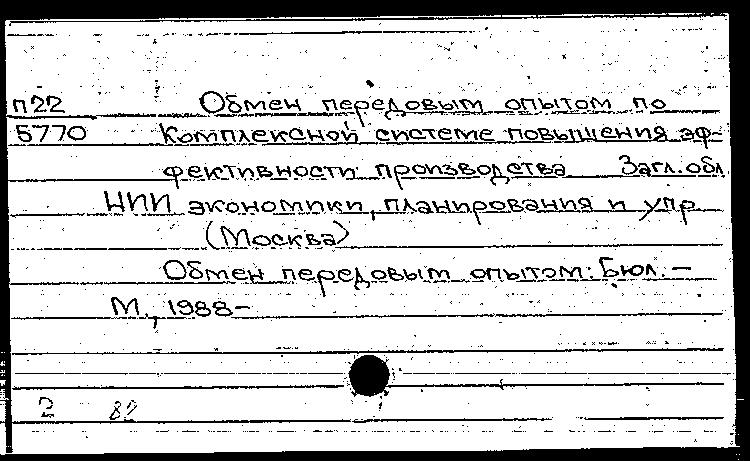 п22 Обмен передовым опытом по
5770 комплексной системе повышения эф-
фективности производства Загл. обл
НИИ экономики, планирования и упр
(Москва)
Обмен передовым опытом: Бюл. –
М., 1988–
2 82